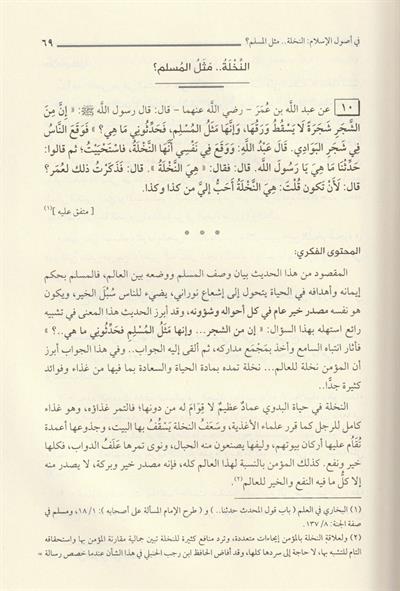 في أصول الإسلام: النخلة.. مثل المسلم؟ ٦٩
النَّخْلَةُ.. مَثَلُ المُسلم؟
١٠ عن عبد الله بن عُمَرَ - رضي الله عنهما - قال: قال رسول الله ﷺ: « إنَّ مِنَ
الشَّجَرِ شَجَرَةً لَا يَسْقُطُ وَرَقُهَا، وَإِنَّهَا مَثَلُ المُسْلِمِ، فَحَدِّثُونِي مَا هِيَ؟ » فَوَقَعَ النَّاسُ
فِي شَجَرِ البَوَادِي. قَالَ عَبْدُ اللهِ: وَوَقَعَ فِي نَفْسِي أَنَّهَا النَّخْلَةُ، فَاسْتَحْيَيْتُ؛ ثم قالوا:
حَدِّثْنَا مَا هِيَ يَا رَسُولَ اللَّهِ. قال: فقال: « هِيَ النَّخْلَةُ ». قال: فَذَكَرْتُ ذلك لعُمَرَ؟
قال: لَأَنْ تَكون قُلْتَ: هِيَ النَّخْلَةُ أَحَبُّ إليَّ من كذا وكذا.
[ متفق عليه ](١)
* * *
المحتوى الفكري:
المقصود من هذا الحديث بيان وصف المسلم ووضعه بين العالم، فالمسلم بحكم
إيمانه وأهدافه في الحياة يتحول إلى إشعاع نوراني، يضيء للناس سُبُلَ الخير، ويكون
هو نفسه مصدر خير عام في كل أحواله وشؤونه، وقد أبرز الحديث هذا المعنى في تشبيه
رائع استهله بهذا السؤال: « إن من الشجر... وإنها مَثَلُ المُسْلِمِ فَحدِّثُوني ما هي..؟ »
فأثار انتباه السامع وأخذ بمَجْمَع مداركه، ثم ألقى إليه الجواب.. وفي هذا الجواب أبرز
أن المؤمن نخلة للعالم... نخلة تمده بمادة الحياة والسعادة بما فيها من غذاء وفوائد
كثيرة جدًّا..
النخلة في حياة البدوي عمادٌ عظيمٌ لا قِوَامَ له من دونها؛ فالتمر غذاؤه، وهو غذاء
كامل للرجل كما قرر علماء الأغذية، وسَعَفُ النخلة يَسْقُفُ بها البيت، وجذوعها أعمدة
تُقَامُ عليها أركان بيوتهم، وليفها يصنعون منه الحبال، ونوى تمرها عَلَفُ الدواب، فكلها
خير ونفع. كذلك المؤمن بالنسبة لهذا العالم كله، فإنه مصدر خير وبركة، لا يصدر منه
إلا كلُّ ما فيه النفع والخير للعالم(٢).
(١) البخاري في العلم ( باب قول المحدث حدثنا.. ) و ( طرح الإمام المسألة على أصحابه ): ١٨/١، ومسلم في
صفة الجنة: ١٣٧/٨.
(٢) ولعلاقة النخلة بالمؤمن إيحاءات متعددة، وترد منافع كثيرة للنخلة تبين جمالية مقارنة المؤمن بها واستحقاقه
التام للتشبه بها، لا حاجة إلى سردها كلها، وقد أفاض الحافظ ابن رجب الحنبلي في هذا الشأن عندما خصص رسالة =